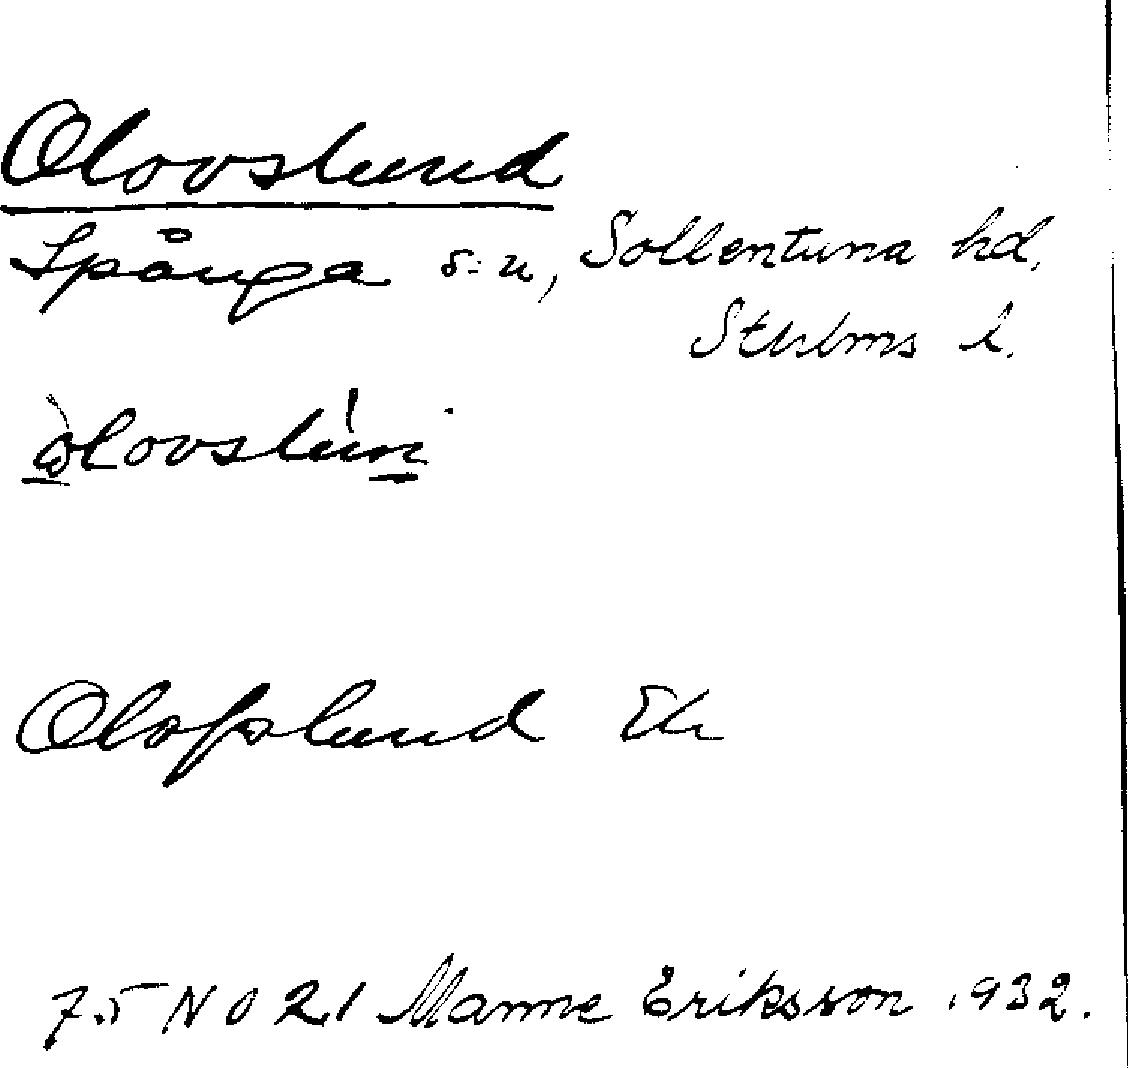 Olovslund
Spånga s:n, Sollentuna hd,
Sthlms l.
Olofslund Ek
75 NO 21 Manne Eriksson 1932.